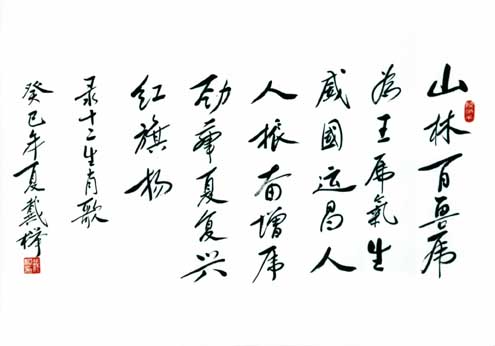 山林百兽虎
为王虎氣生
威國运昌人
人振奋增虎
劲華夏复兴
红旗扬
录十二生肖歌
癸巳年夏戴